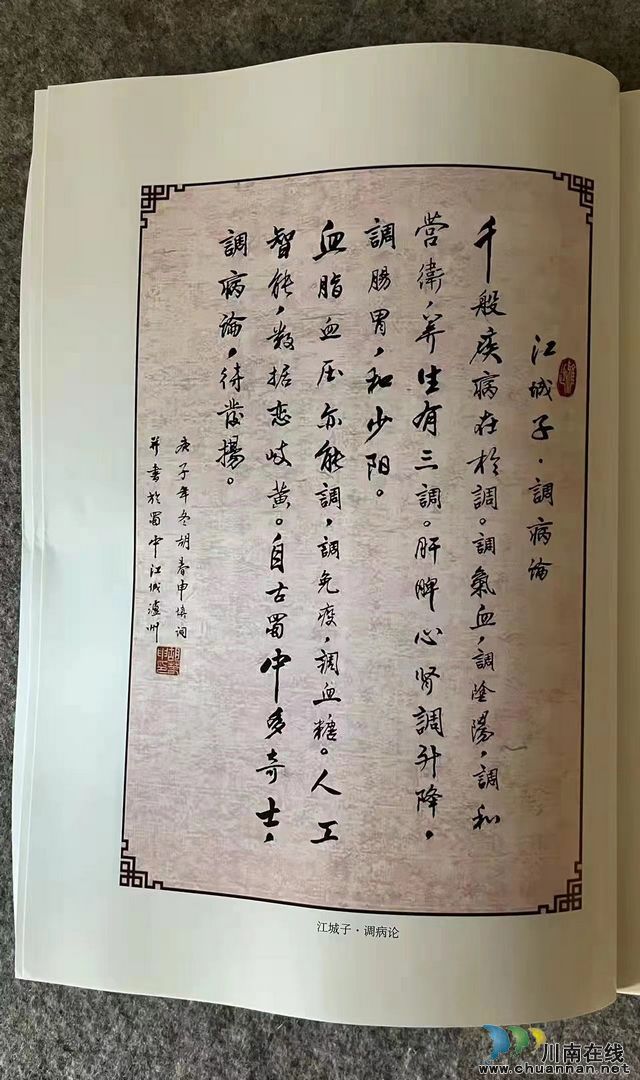 江城子·調病论
千般疾病在於調。調氣血，調陰陽，調和
营衛，养生有三調。肝脾心肾調升降，
調腸胃，和少阳。
血脂血压亦能調，調免疫，调血糖。人工
智能，数据恋岐黄。自古蜀中多奇士，
調病论，待發揚。
庚子年冬胡春申填词
并書於蜀中江城瀘州
江城子·调病论
川南在线
www.chuannan.net